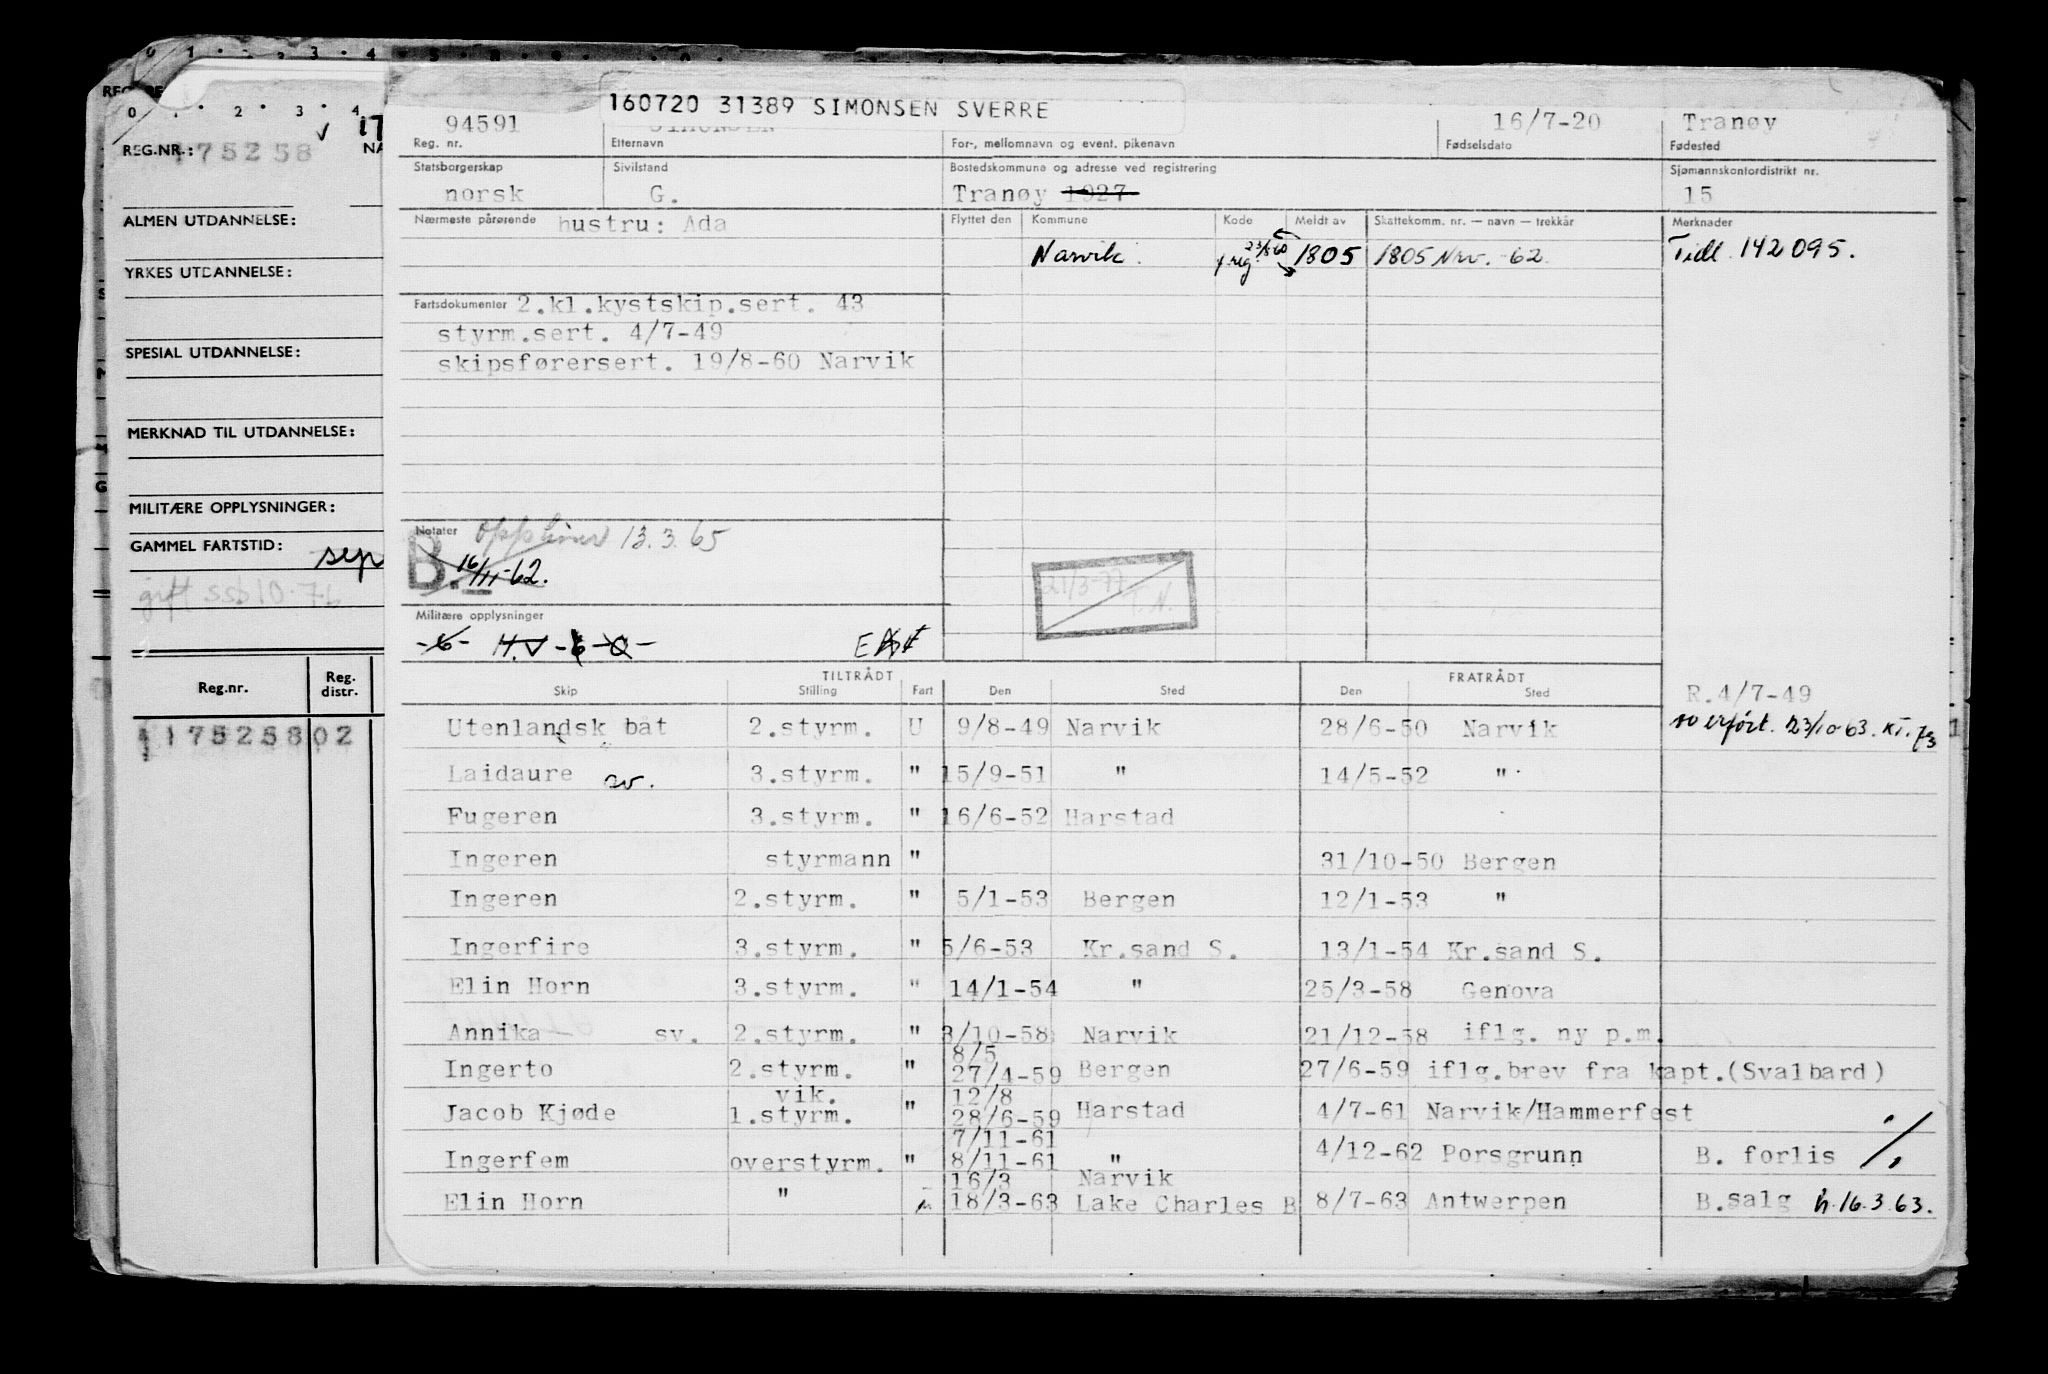 160720 31389 SIMONSEN SVERRE
REG.NR.: 175258
ALMEN UTDANNELSE:
YRKES UTDANNELSE:
SPESIAL UTDANNELSE:
MERKNAD TIL UTDANNELSE:
MILITÆRE OPPLYSNINGER:
GAMMEL FARTSTID: sep
gift ssb 10.76
Reg.nr. Reg. distr.
175258 02
94591 16/7-20 Tranøy
Reg. nr. Etternavn For-, mellomnavn og event. pikenavn Fødselsdato Fødested
Statsborgerskap Sivilstand Bostedskommune og adresse ved registrering Sjømannskontordistrikt nr.
norsk G. Tranøy 1927 15
Nærmeste pårørende hustru: Ada Flyttet den Kommune Kode Meldt av Skattekomm. nr. — navn — trekkår Merknader
Narvik. 1805 1805 Nrv. -62 Tidl. 142095.
Fartsdokumenter 2.kl.kystskip.sert. 43
styrm.sert. 4/7-49
skipsførersert. 19/8-60 Narvik
Notater 13.3.65
B. 16/11-62.
21/3-77 T.N.
Militære opplysninger
-6- H.V -6-0-
TILTRÅDT FRATRÅDT
Skip Stilling Fart Den Sted Den Sted
R.4/7-49
Utenlandsk båt 2.styrm. U 9/8-49 Narvik 28/6-50 Narvik 23/10-63.
Laidaure sv. 3.styrm. " 15/9-51 " 14/5-52 "
Fugeren 3.styrm. " 16/6-52 Harstad
Ingeren styrmann " 31/10-50 Bergen
Ingeren 2.styrm. " 5/1-53 Bergen 12/1-53 "
Ingerfire 3.styrm. " 5/6-53 Kr.sand S. 13/1-54 Kr.sand S.
Elin Horn 3.styrm. " 14/1-54 " 25/3-58 Genova
Annika sv. 2.styrm. " 3/10-58 Narvik 21/12-58 iflg. ny p.m.
8/5
Ingerto 2.styrm. " 27/4-59 Bergen 27/6-59 iflg.brev fra kapt.(Svalbard)
vik. 12/8
Jacob Kjøde 1.styrm. " 28/6-59 Harstad 4/7-61 Narvik/Hammerfest
7/11-61
Ingerfem overstyrm. " 8/11-61 " 4/12-62 Porsgrunn B. forlis
16/3 Narvik
Elin Horn " 18/3-63 Lake Charles B 8/7-63 Antwerpen B.salg h.16.3.63.